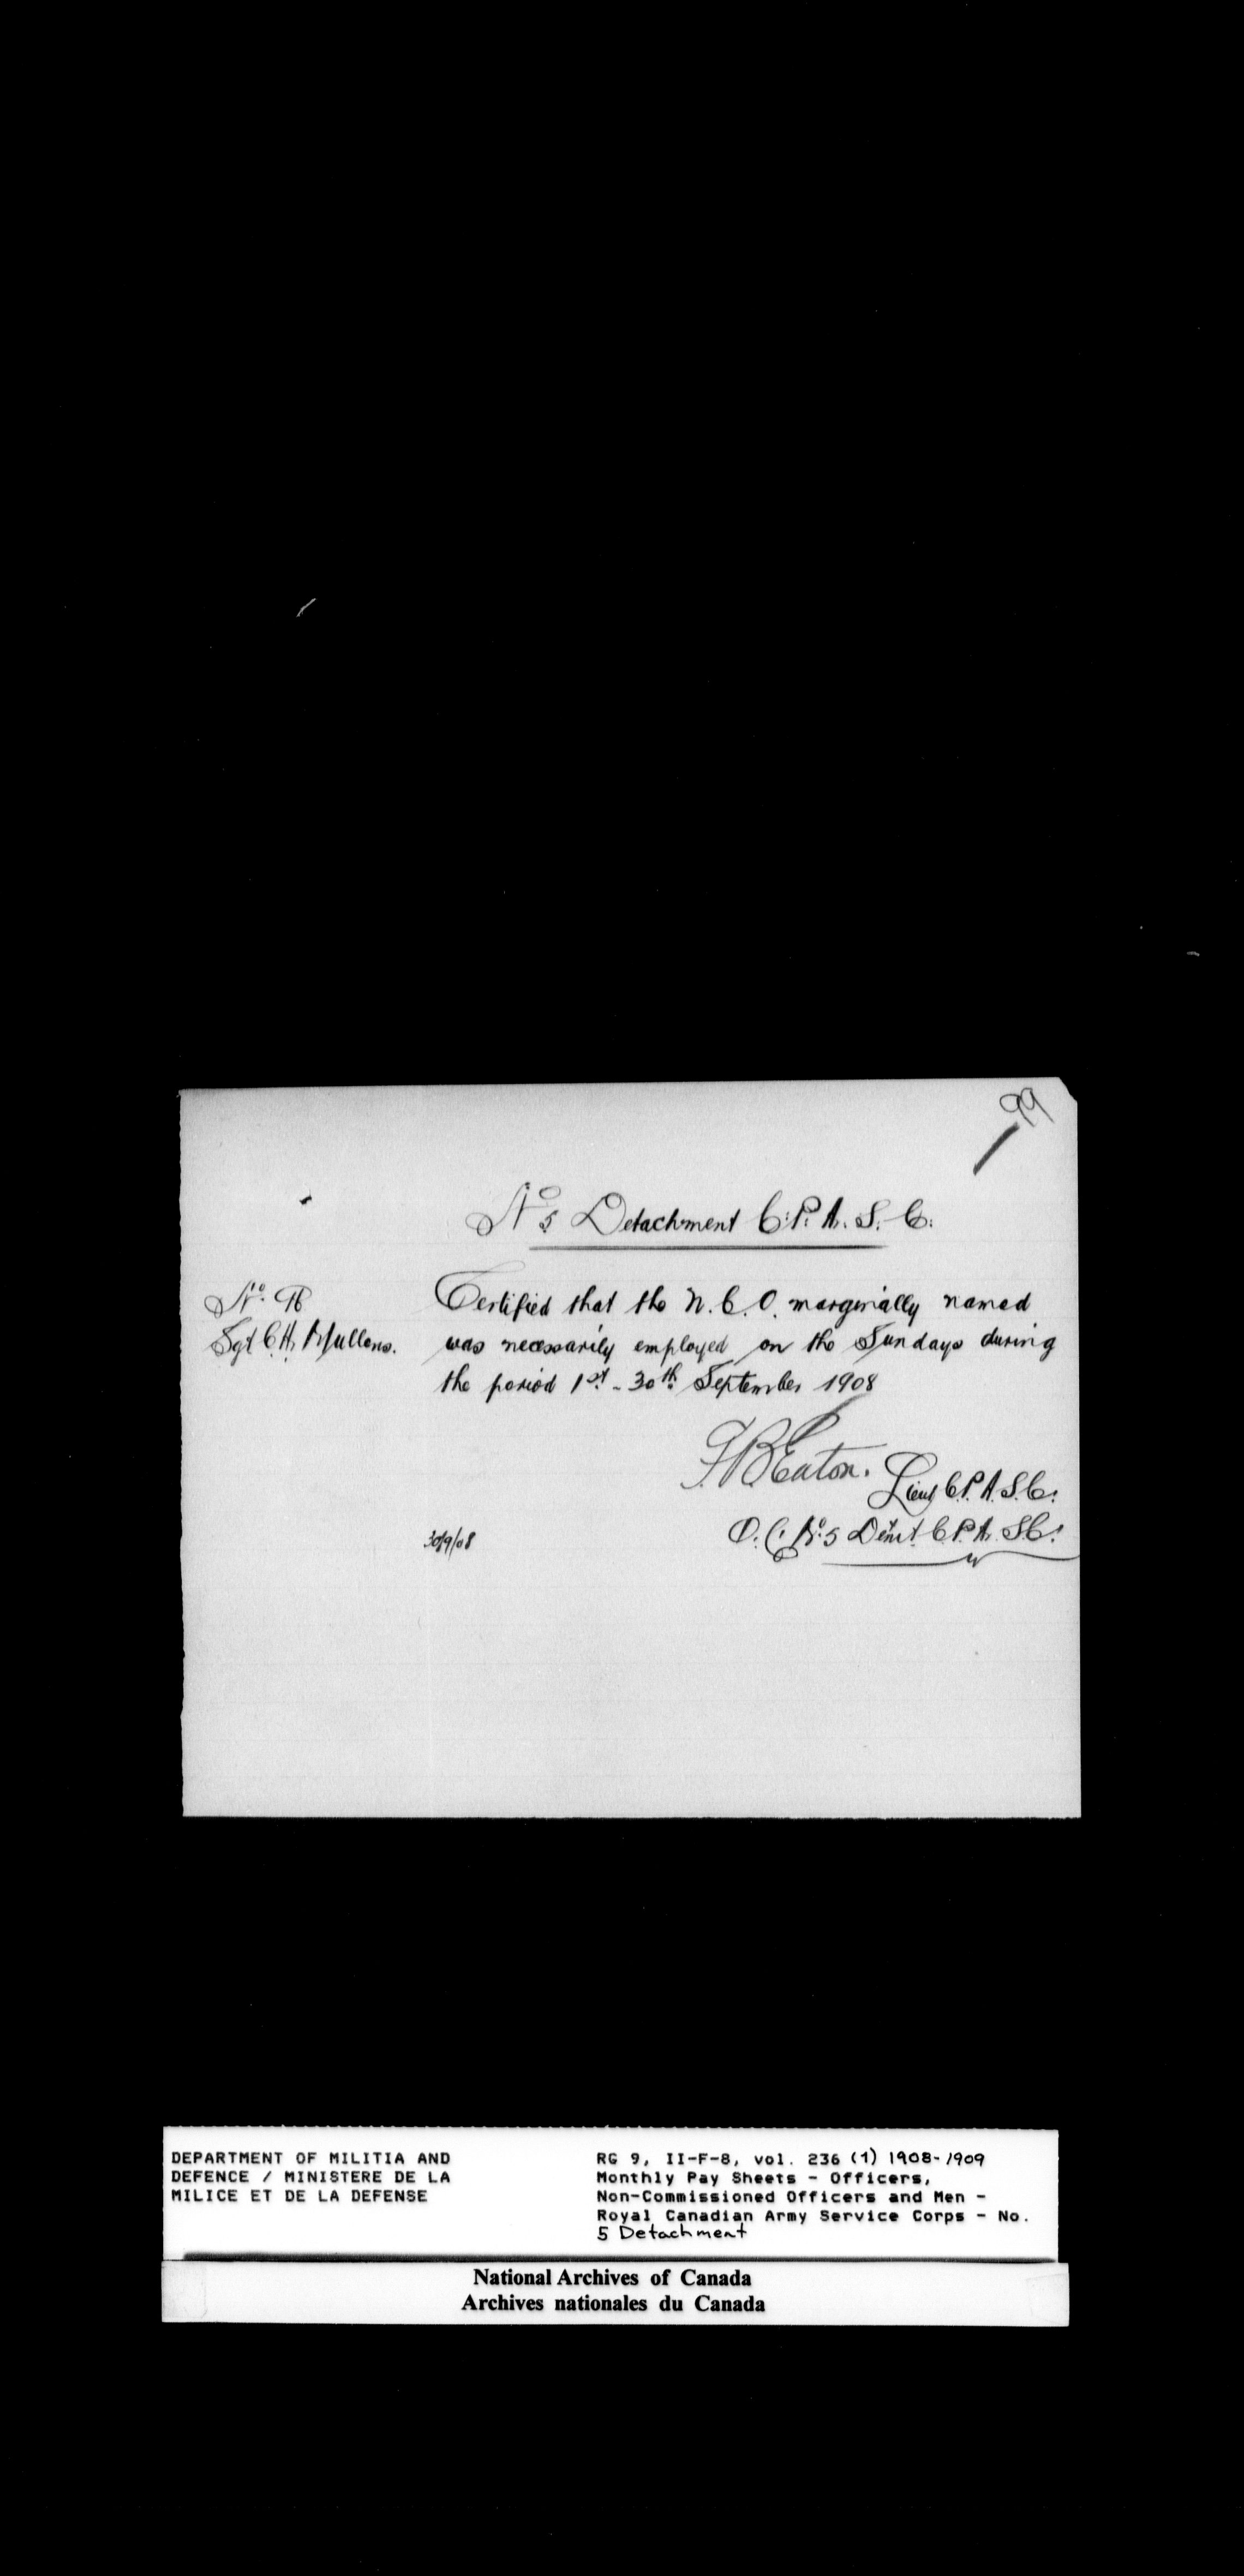 99
No 5 Detachment C.P.A.S.C.
No. 96
Sgt C.H. Mullens.
Certified that the N.C.O. marginally named
was necessarily employed on the Sundays during
the period 1st - 30th September 1908
F.B. Eaton. Lieut C.P.A.S.C.
O.C. No. 5 Detmt. C.P.A.S.C.
30/9/08
DEPARTMENT OF MILITIA AND
DEFENCE / MINISTERE DE LA
MILICE ET DE LA DEFENSE
RG 9, II-F-8, vol. 236 (1) 1908-1909
Monthly Pay Sheets - Officers,
Non-Commissioned Officers and Men -
Royal Canadian Army Service Corps - No.
5 Detachment
National Archives of Canada
Archives nationales du Canada